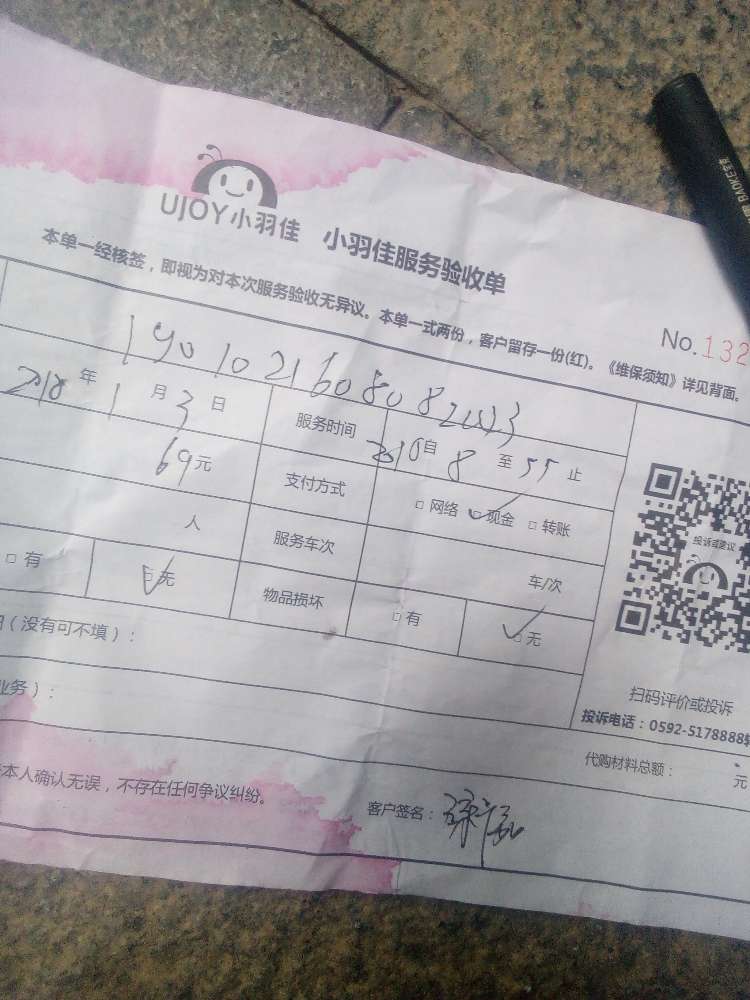 BAOKE宝克
UJOY小羽佳 小羽佳服务验收单
本单一经核签，即视为对本次服务验收无异议。本单一式两份，客户留存一份(红)。《维保须知》详见背面。
No.132
年 1 月 3 日 服务时间 自 8 至 55 止
69元 支付方式 □ 网络 □ 现金 □ 转账
人 服务车次 车/次
□ 有 □ 无 物品损坏 □ 有 □ 无
投诉或建议
（没有可不填）：
业务）：
扫码评价或投诉
投诉电话：0592-5178888转
代购材料总额： 元
本人确认无误，不存在任何争议纠纷。
客户签名：